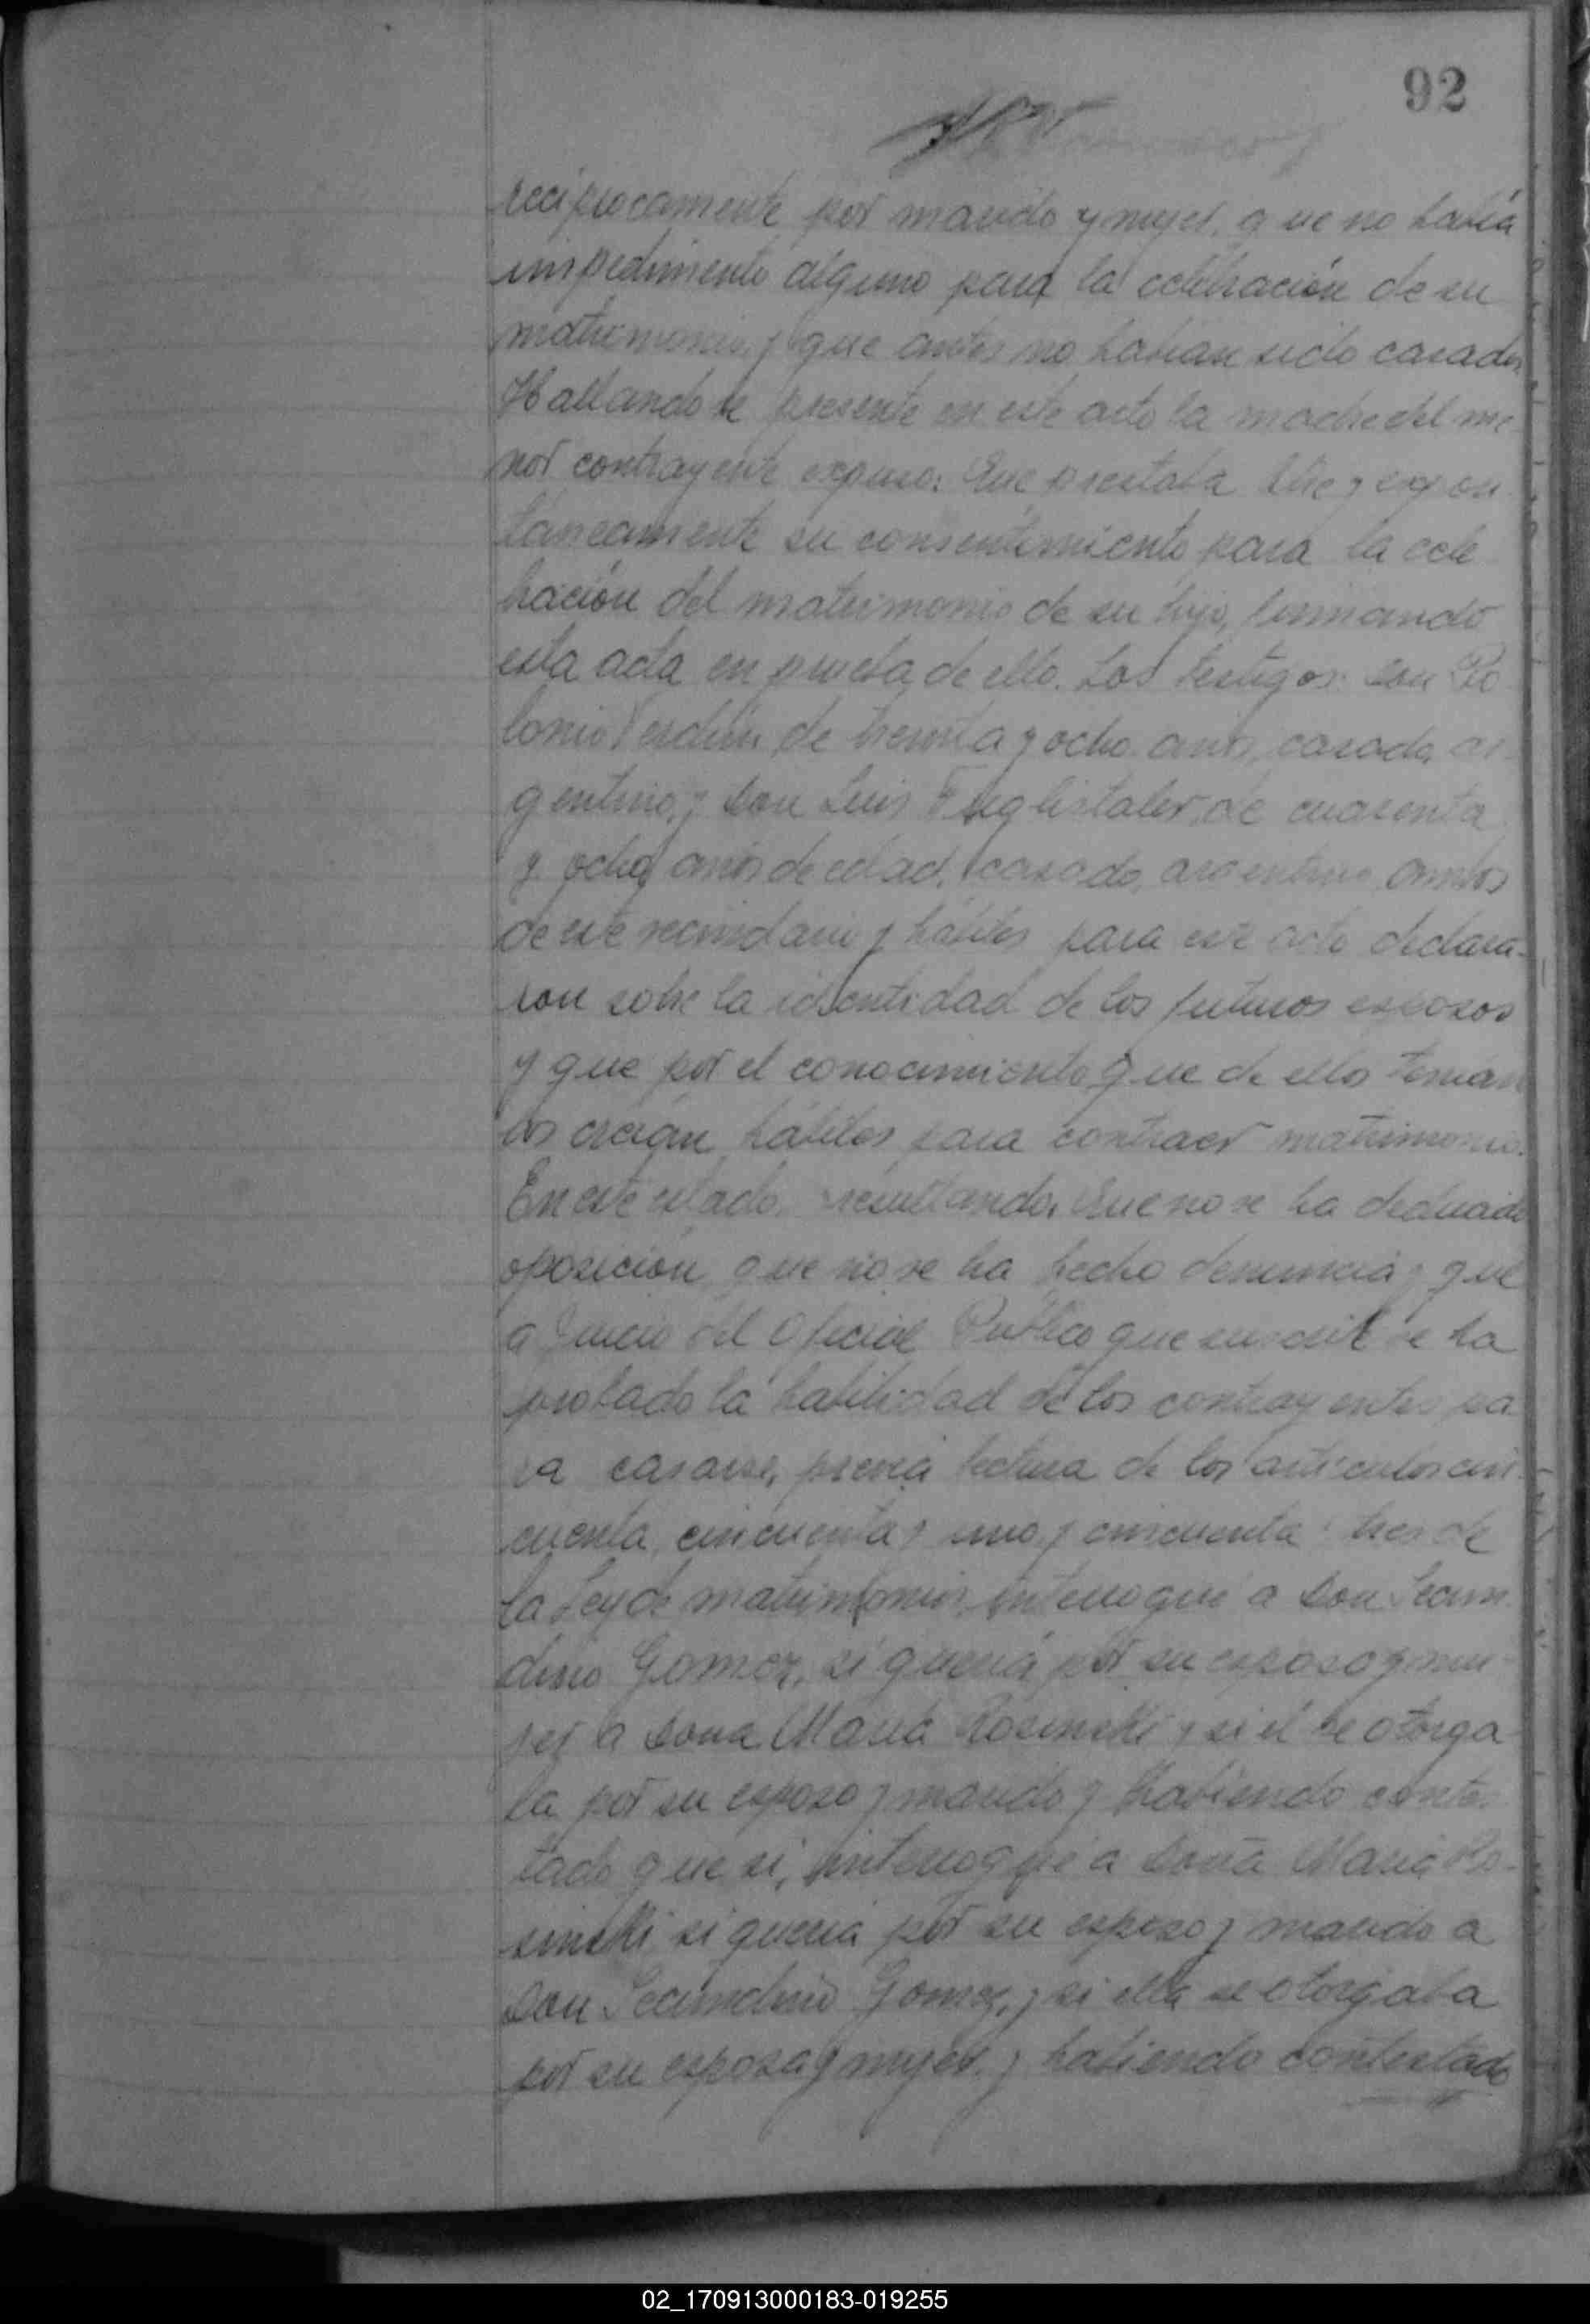 92
reciprocamente por marido y mujer, que no había
impedimento alguno para la celebración de su
matrimonio y que antes no habían sido casados
Hallandose presente en este acto la madre del me
nor contrayente expuso: Que prestaba libre y expon
táneamente su consentimiento para la cele
bración del matrimonio de su hijo, firmando
esta acta en prueba de ello. Los testigos: Don Po
lonio de treinta y ocho años, casado, ar
gentino, y Don Luis de cuarenta
y ocho años de edad, casado, argentino, ambos
de este vecindario y hábiles para este acto declara-
ron sobre la identidad de los futuros esposos
y que por el conocimiento que de ellos tenían
los creían hábiles para contraer matrimonio.
En este estado, resultando, Que no se ha deducido
oposición, que no se ha hecho denuncia y que
a juicio del Oficial Público que suscribe se ha
probado la habilidad de los contrayentes pa
ra casarse, previa lectura de los artículos cin
cuenta, cincuenta y uno y cincuenta y tres de
la Ley de matrimonio, interrogué a Don Secun
dino Gomez, si quería por su esposa y mu-
jer a Doña María Rosinski y si él se otorga
ba por su esposo y marido y habiendo contes-
tado que si, interrogué a Doña María Ro-
sinski si quería por su esposo y marido a
Don Secundino Gomez, y si ella se otorgaba
por su esposa y mujer, y habiendo contestado
02_170913000183-019255